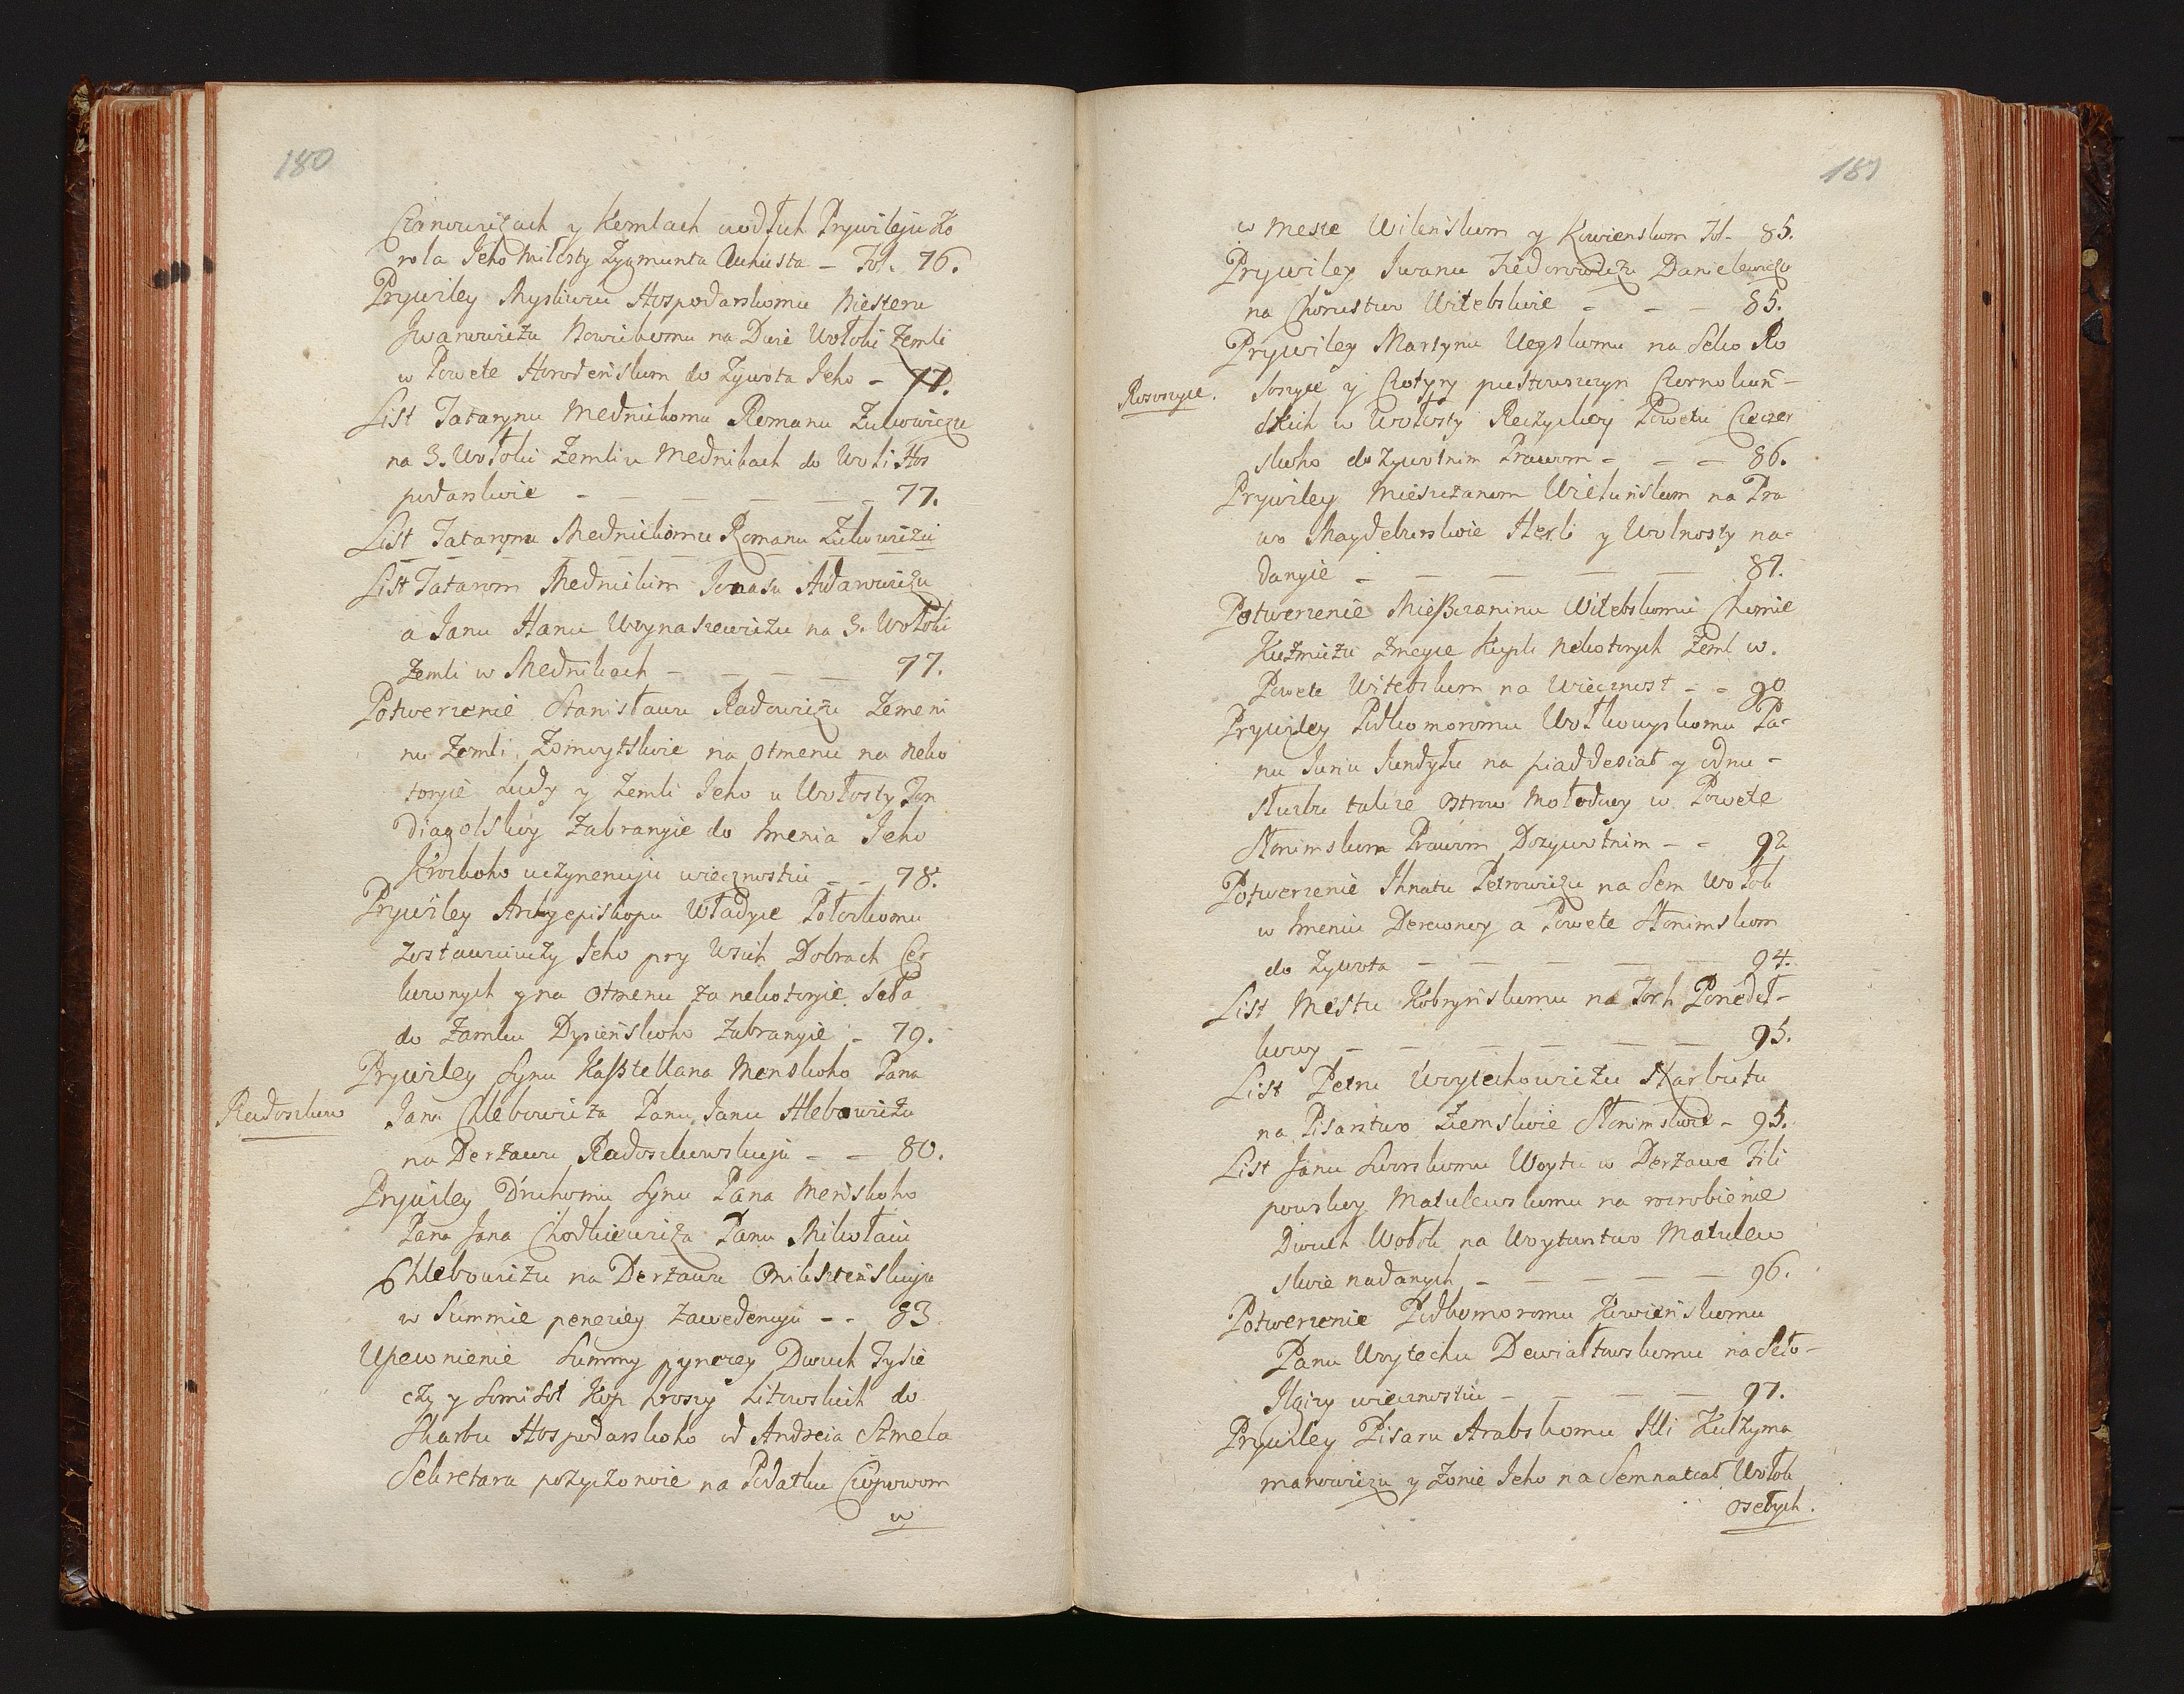 180
Czernowiczach y Kemlach wodłuh Prywileju Ko
rola Jeho Miłosty Zygmunta Auhusta - Fol. 76.
Prywiley Mysliwcu Hospodarskomu Nesteru
Iwanowiczu Nowickomu na Dwie Wołoki Zemli
w Powete Horodeńskom do Zywota Jeho - 77.
List Tatarynu Mednickomu Romanu Zukowiczu
na 3. Wołoki Zemli w Mednikach do Woli Hos
podarskoie - - - - - - 77.
List Tatarynu Mednickomu Romanu Zukowiczu
List Tatarom Mednickim Jonasu Adarowiczu
a Janu Hanu Woynaszewiczu na 3. Wołoki
Zemli w Mednikach - - - - 77.
Potwerzenie Stanisławu Radowiczu Zemeni
nu Zemli Zomoytskoie na otmenu na neko
toryie Ludy y Zemli Jeho u Wołosty Ton
diagolskoy Zabranyie do Imenia Jeho
Krozkoho uczynenuju wiecznostiu - - 78.
Prywiley Archyepiskopu Władyce Połockomu
Zostawuiuczy Jeho pry Wsich Dobrach Cer
kownych y na otmenu za nekotoryie Seła
do Zamku Dysieńskoho Zabranyie - 79.
Prywiley Synu Kaßtellana Menskoho Pana
Radoszkow
Jana Chlebowicza Panu Janu Hlebowiczu
na Derżawu Radoszkowskuju - - 80.
Prywiley Druhomu Synu Pana Menskoho
Pana Jana Chodkiewicza Panu Mikołaiu
Chlebowiczu na Derżawu Onikszteńskuju
w Summie peneżey zawedenuju - - 83.
Upewnienie Summy pyneżey Dwuch Tysie
czy y Somisot Kop hroszy Litowskich do
Skarbu Hospodarskoho od Andreia Szmela
Sekretara pożyczonoie na Podatku Czopowom
w
181
w Meste Wilenskom y Kowienskom Fol. 85.
Prywiley Iwanu Fiedorowiczu Danielewiczu
na Choruztwo Witebskoie - - - 85.
Prywiley Martynu Uegskomu na Seło Ro
Rososzyce.
soszyce y Czotyry pustowszczyn Czernohań-
skich w Wołosty Reczyckoy Powetu Czeczer
skoho dożywotnim Prawom - - - 86.
Prywiley Miesczanom Wieluńskom na Pra
wo Maydeburskoie Herb y Wolnosty na-
danyie - - - - - 87.
Potwerzenie Mießczaninu Witebskomu Chomie
Kuzmiczu Zmeyce Kupli nekotorych Zeml w.
Powete Witebskom na Wiecznost - - 90
Prywiley Podkomoromu Wołkowyskomu Pa-
nu Janu Jundyłu na piaddesiat y odnu -
służbu także Ostrow Mołodwy w Powete
Słonimskom Prawom Dożywotnim - - 92
Potwerzenie Ihnatu Petrowiczu na Sem Wołok
w Imeniu Derewnoy a Powete Słonimskom
do Zywota - - - - - 94.
List Mestu Kobryńskomu na Torh Ponedeł-
kowy - - - - - - 95.
List Petru Woytechowiczu Skarbutu
na Pisarstwo Ziemskoie Słonimskoie - 95.
List Janu Sworskomu Woytu w Derżawe Fili
powskoy Matulewskomu na rozrobienie
Dwuch Wołok na Woytowstwo Matulew
skoie nadanych - - - - - 96.
Potwerzenie Podkomoromu Kowieńskomu
Panu Woytechu Dewiałtowskomu na Seło-
Ilgiry wiecznostiu - - - - 97.
Prywiley Pisaru Arabskomu Ali Kulzyma
manowiczu y Żonie Jeho na Semnatcat Wołok
osełych.